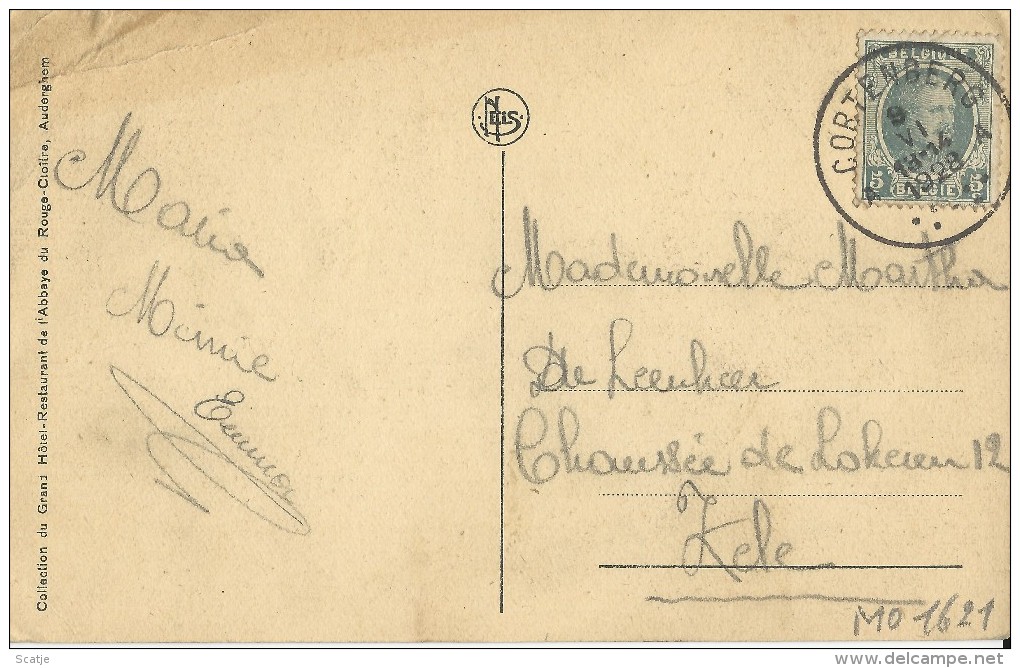 Collection du Grand Hôtel-Restaurant de l'Abbaye du Rouge-Cloître, Auderghem
Maria
Mimie
Emma
NELS
BELGIQUE
5 BELGIË 5
CORTENBERG
9
VI
13-14
1928
A A
Mademoiselle Martha
De Leenheer
Chaussée de Lokeren 12
Zele
MO 1621
Scatje
delcampe.net